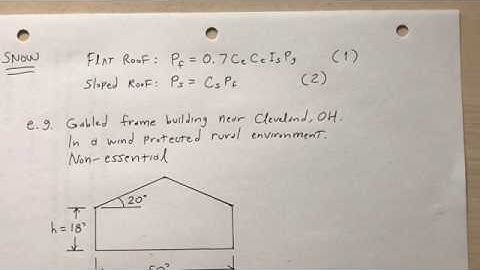 SNOW
FLAT ROOF: Pf = 0.7 Ce Ct Is Pg (1)
SLOPED ROOF: Ps = Cs Pf (2)
e.g. Gabled frame building near Cleveland, OH.
In a wind protected rural environment.
Non-essential
20°
h = 18'